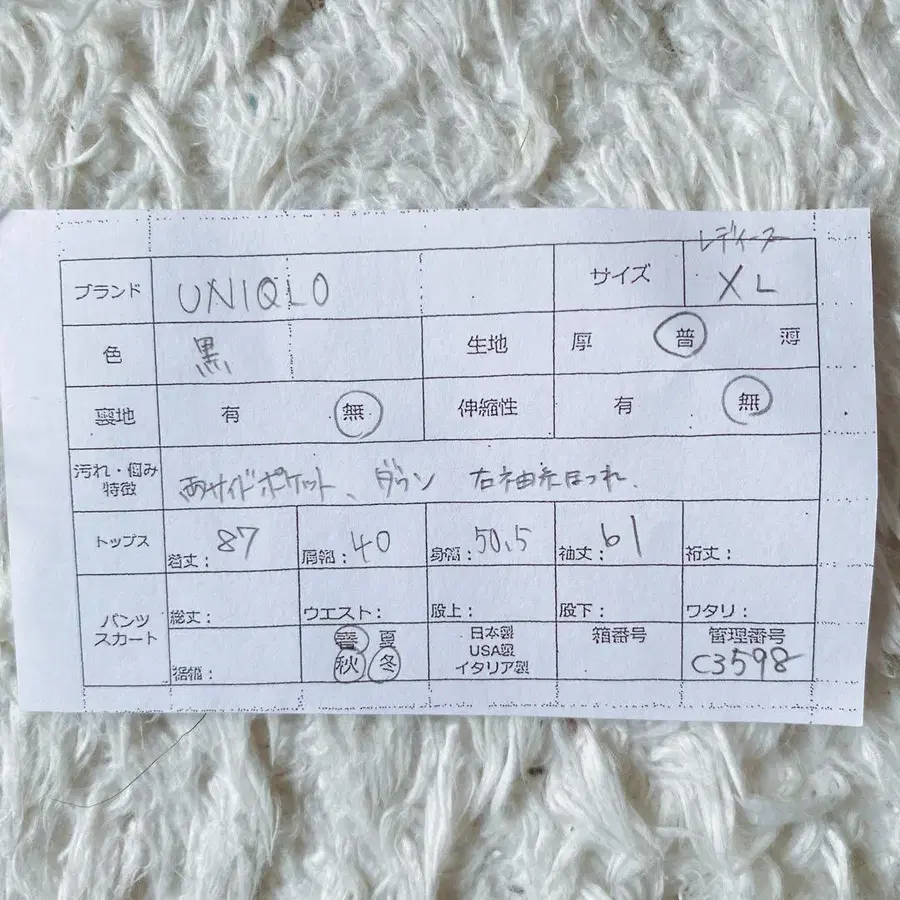 レディース
ブランド UNIQLO サイズ XL
色 黒 生地 厚 普 薄
裏地 有 無 伸縮性 有 無
汚れ・傷み
特徴 両サイドポケット、ダウン 右袖糸ほつれ.
トップス 着丈: 87 肩幅: 40 身幅: 50.5 袖丈: 61 裄丈:
パンツ
スカート 総丈: ウエスト: 股上: 股下: ワタリ:
裾幅: 春 夏 秋 冬 日本製 USA製 イタリア製 箱番号 管理番号
C3598